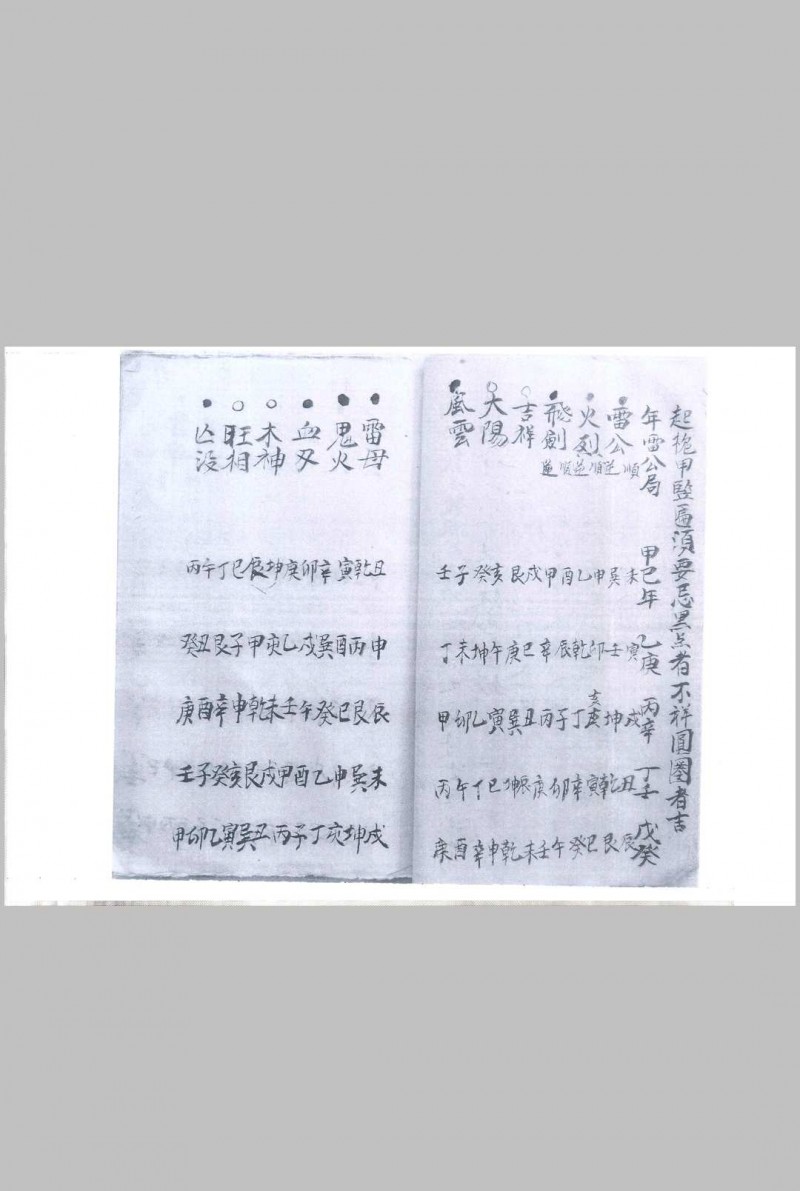 起桅甲竪匾須要忌黑点者不祥圓圈者吉
年雷公局 甲己年 乙庚 丙辛 丁壬 戊癸
雷公 順逆 未巽 寅壬 戌坤 丑乾 辰艮
火烈 順逆 申乙 卯乾 亥丁 寅辛 巳癸
飛劍 順逆 酉甲 辰辛 子丙 卯庚 午壬
吉祥 戌艮 巳庚 丑巽 辰坤 未乾
太陽 亥癸 午坤 寅乙 巳丁 申辛
風雲 子壬 未丁 卯甲 午丙 酉庚
雷母 丑乾 申丙 辰艮 未巽 戌坤
鬼火 寅辛 酉巽 巳癸 申乙 亥丁
血刃 卯庚 戌乙 午壬 酉甲 子丙
木神 坤辰 亥甲 未乾 戌艮 丑巽
旺相 巳丁 子艮 申辛 亥癸 寅乙
亾没 午丙 丑癸 酉庚 子壬 卯甲